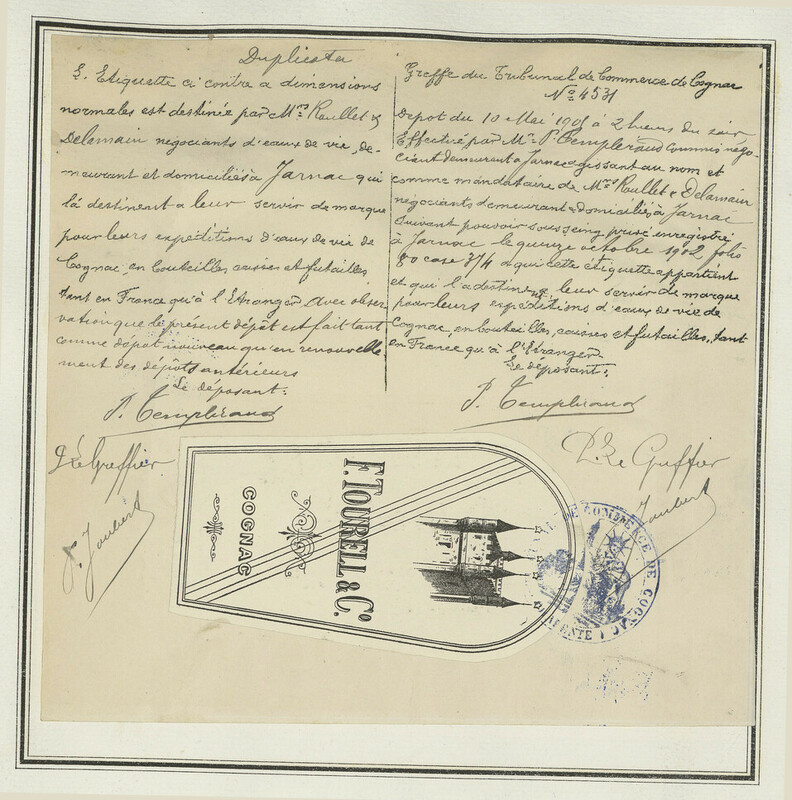 Duplicata
L'Etiquette ci contre a dimensions
normales est destinée par Mrs Roullet &
Delamain négociants d'eaux de vie, de-
meurant et domiciliés à Jarnac qui
la destinent a leur servir de marque
pour leurs expéditions d'eaux de vie de
Cognac, en bouteilles, caisses et futailles
tant en France qu'à l'Etranger. Avec obser
vation que le présent dépôt est fait tant
comme dépôt nouveau qu'en renouvelle
ment des dépôts antérieurs
Le déposant:
P. Templeraud
Le Greffier
P. Joubert
Greffe du Tribunal de Commerce de Cognac
No 4531
Dépôt du 10 Mai à 2 heures du soir
Effectué par Mr P. Templeraud commis négo-
ciant demeurant à Jarnac agissant au nom et
comme mandataire de Mrs Roullet & Delamain
négociants demeurant & domiciliés à Jarnac
suivant pouvoir sous seing privé enregistré
à Jarnac le quinze octobre 1902 folio
80 case 374 a qui cette étiquette appartient
et qui l'a destinent leur servir de marque
pour leurs expéditions d'eaux de vie de
Cognac, en bouteilles, caisses et futailles, tant
en France qu'à l'Etranger
Le déposant:
P. Templeraud
Le Greffier
Joubert
F. TOURELL & Co
COGNAC
COMMERCE DE COGNAC